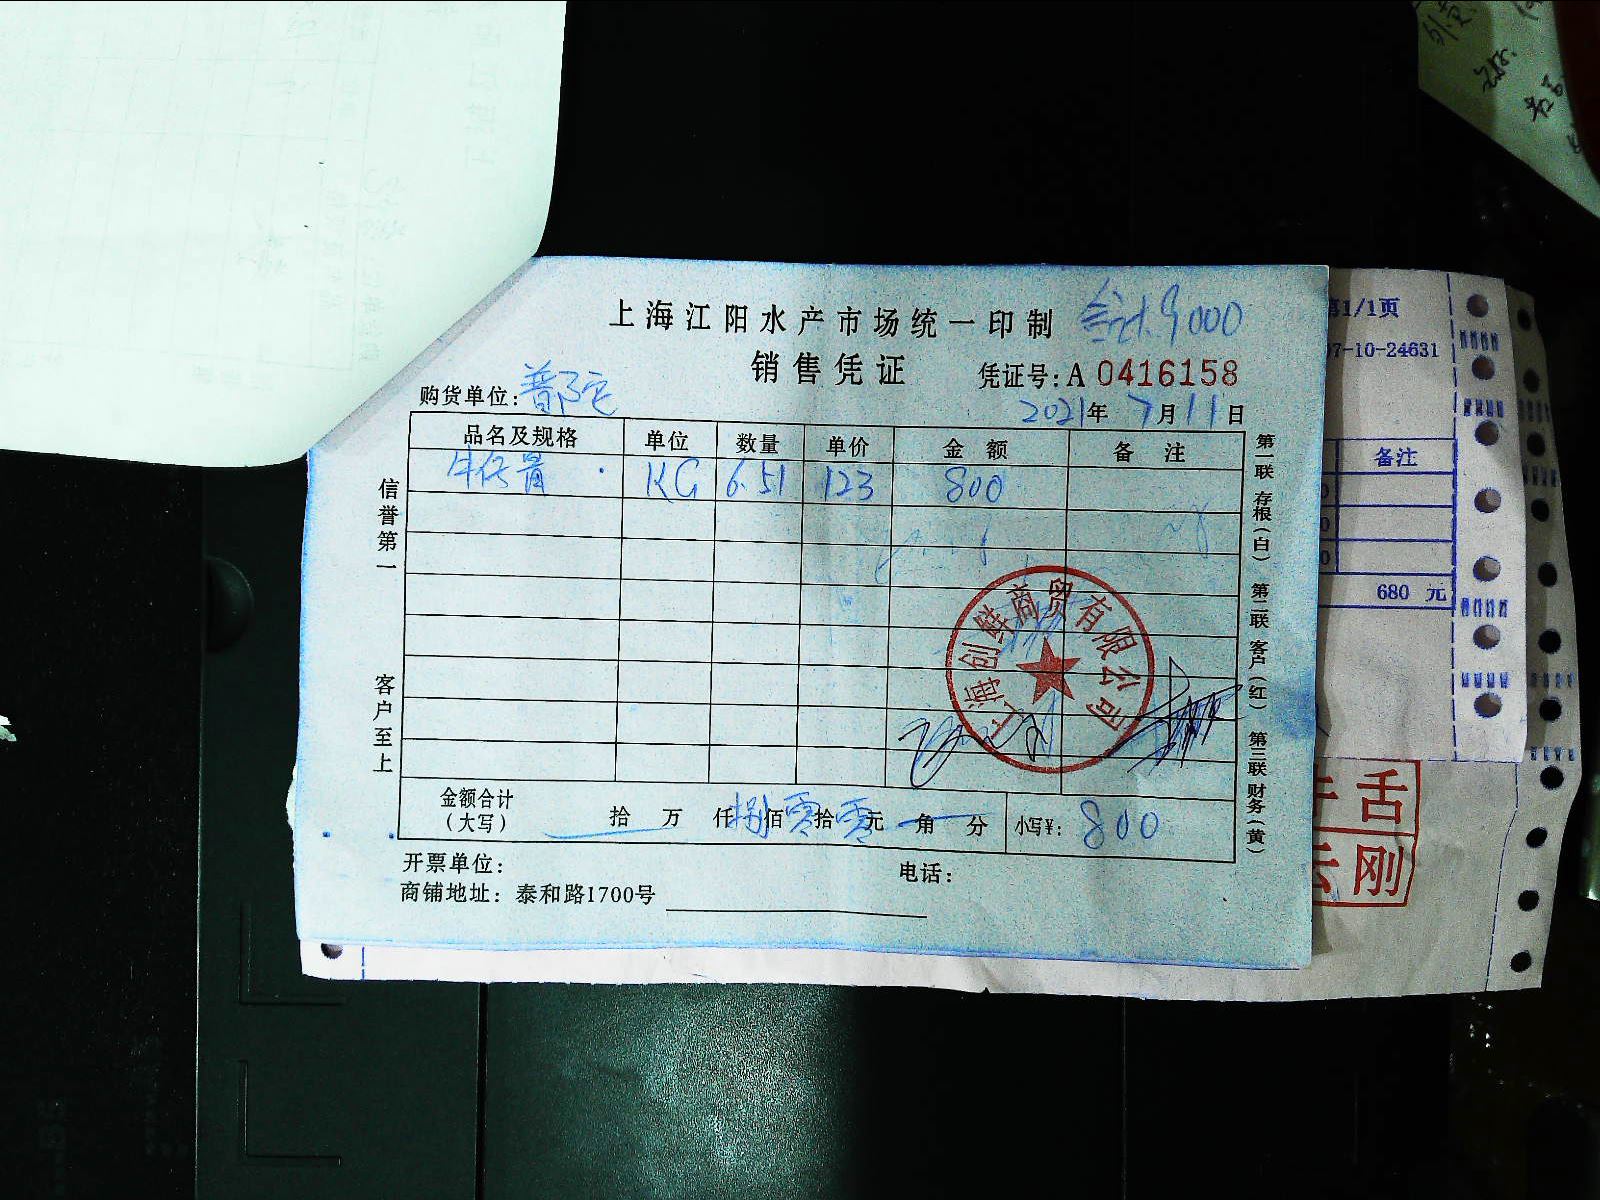 上海江阳水产市场统一印制 合计9000
销售凭证 凭证号:A 0416158
购货单位:
2021年 7月11日
品名及规格 单位 数量 单价 金额 备注
牛仔骨 KG 6.51 123 800
信誉第一
客户至上
第一联 存根(白) 第二联 客户(红) 第三联 财务(黄)
上海创鲜商贸有限公司
金额合计(大写) 拾 万 仟 捌佰 零拾 零元 角 分 小写¥: 800
开票单位: 电话:
商铺地址: 泰和路1700号
第1/1页
7-10-24631
备注
680 元
舌
刚